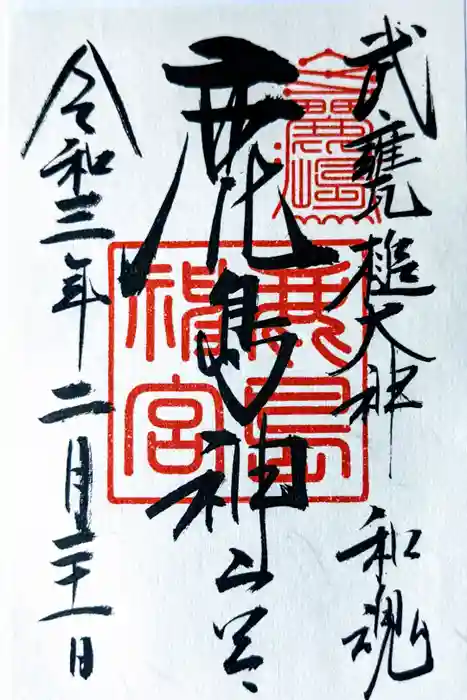 武甕槌大神 和魂
鹿島神宮
令和三年二月二十一日
鹿島
神宮